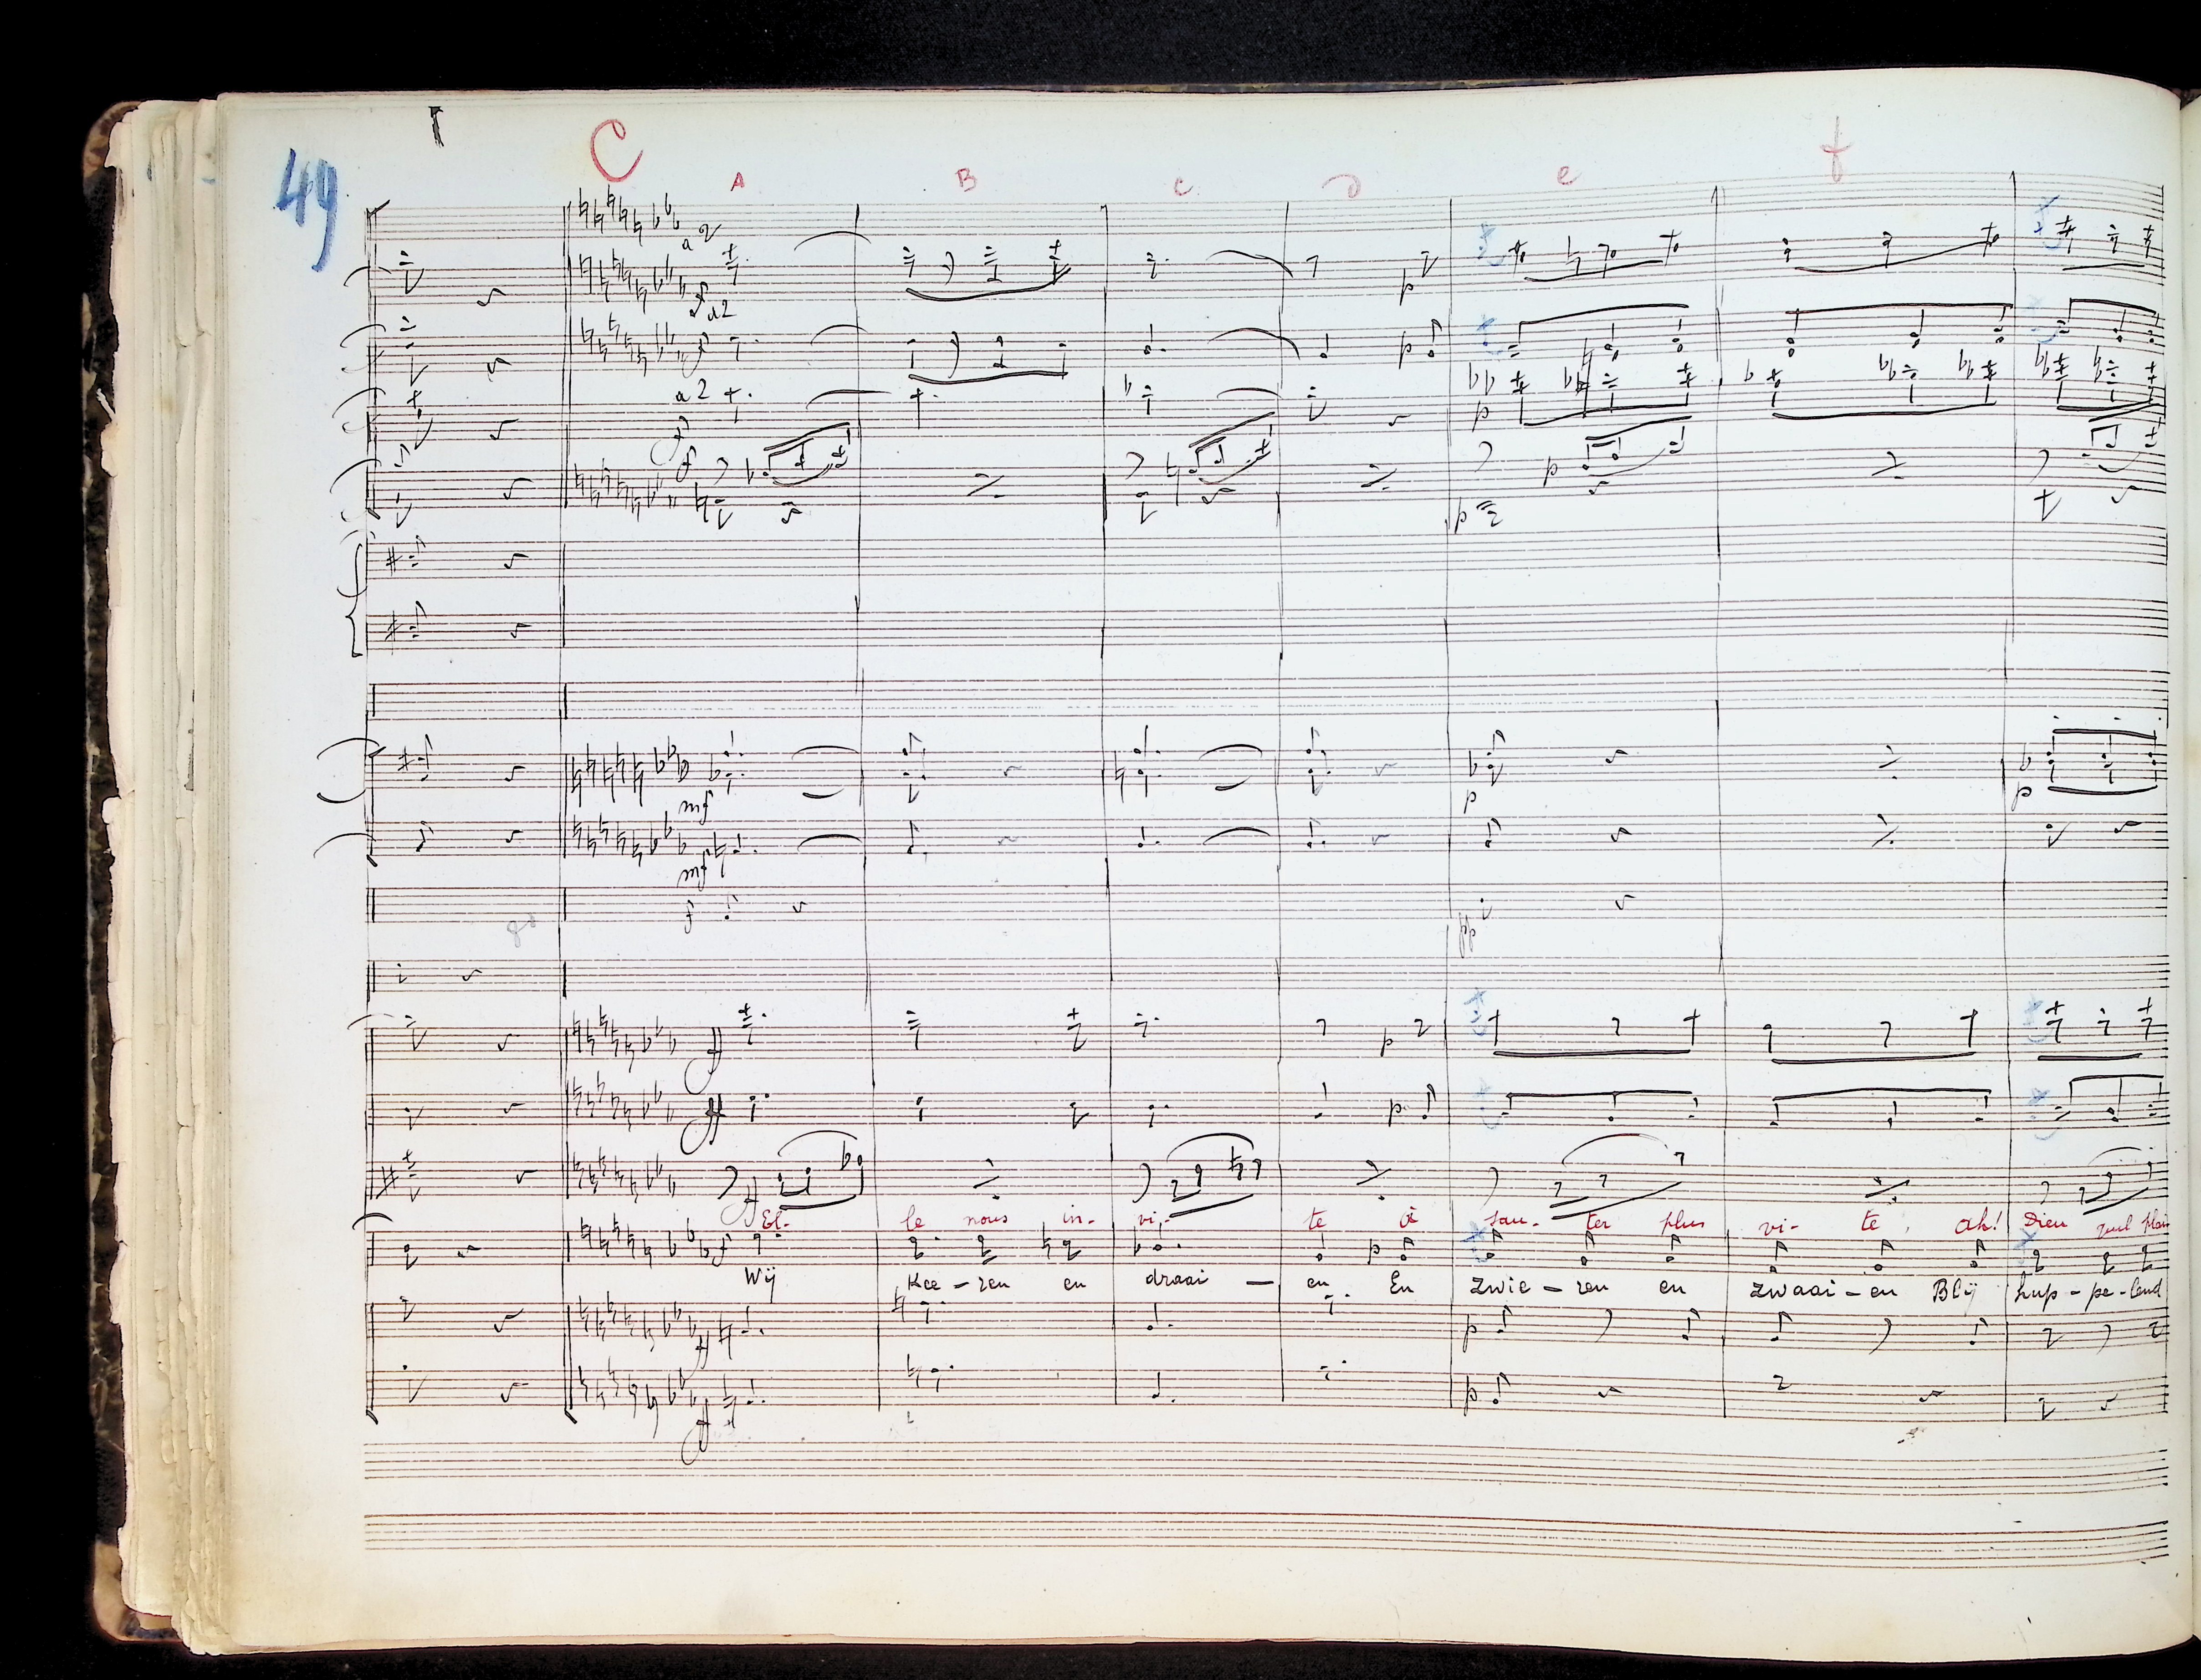 49
C
A B C D e f
a 2
f
a 2
f p
a 2
f p
f p
p
mf p p
mf
f pp
ff p
ff p
ff
El- le nous in- vi- te à sau- ter plus vi- te, Ah! Dieu quel plai
f p
Wij Kee - ren en draai - en En Zwie - ren en zwaai - en Blij hup - pe - lend
ff p
ff p